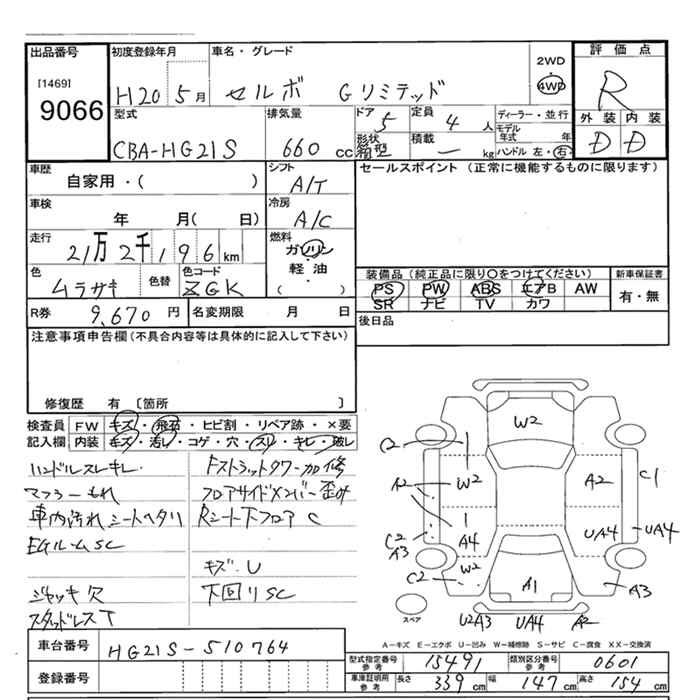 出品番号 初度登録年月 車名・グレード 評価点
[1469]
9066
H20 5月 セルボ Gリミテッド 2WD 4WD R
型式 排気量 ドア 定員 ディーラー・並行 外装 内装
CBA-HG21S 660 cc 5 4人 モデル年式 年 D D
形状 箱型 積載 ー kg ハンドル 左・右
車歴 シフト セールスポイント (正常に機能するものに限ります)
自家用・( ) A/T
車検 冷房
年 月( 日) A/C
走行 燃料
21万2千196km ガソリン
軽・油
( )
色 色替 色コード 装備品 (純正品に限り〇をつけてください) 新車保証書
ムラサキ ZGK PS PW ABS エアB AW 有・無
SR ナビ TV カワ
R券 9,670円 名変期限 月 日 後日品
注意事項申告欄(不具合内容等は具体的に記入して下さい)
修復歴 有 〔箇所
検査員 FW キズ・飛石・ヒビ割・リペア跡・×要
記入欄 内装 キズ・汚れ・コゲ・穴・スリ・キレ・破れ
ハンドルスレキレ Fストラットタワー加修
マフラーもれ フロアサイドメンバー歪み
車内汚れ シートヘタリ Rシート下フロア C
EGルームSC
キズ・U
ジャッキ欠 下回りSC
スタッドレスT
W2
C2 A2 W2 A2 C1
C2 A3 A4 UA4 UA4
C2 W2 A1 A3
スペア U2A3 UA4 A2
A－キズ E－エクボ U－凹み W－補修跡 S－サビ C－腐食 XX－交換済
車台番号 HG21S-510764
登録番号
型式指定番号 参考 15491 類別区分番号 参考 0601
車庫証明用 参考 長さ 339cm 幅 147cm 高さ 154cm